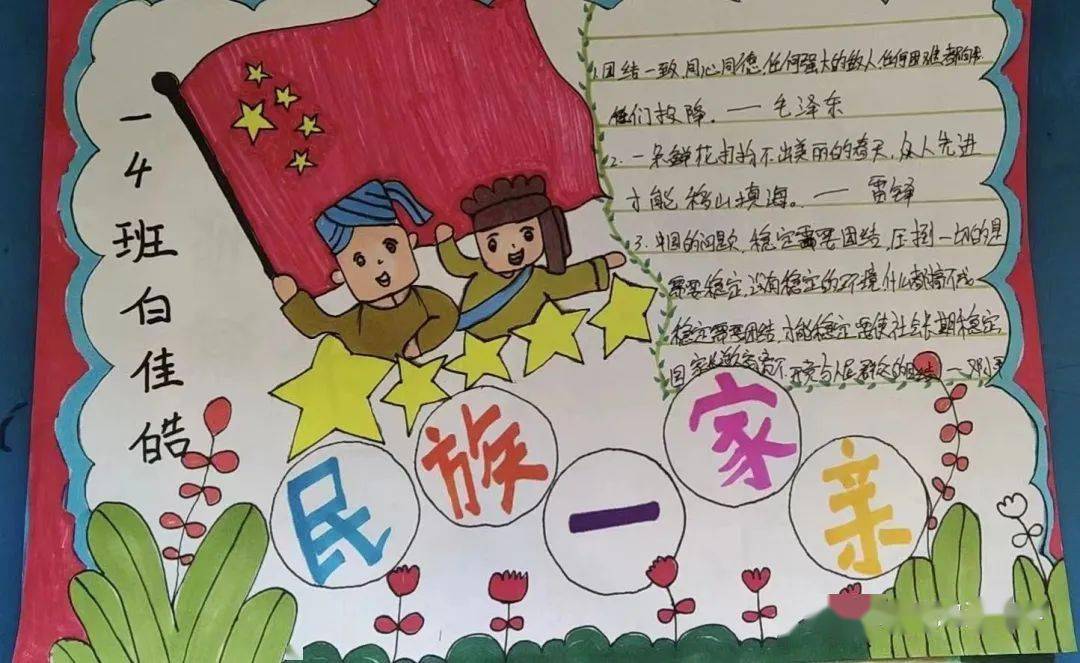 一4班白佳皓
1.团结一致,同心同德,任何强大的敌人任何困难都向我
们投降.一毛泽东
2.一朵鲜花打扮不出美丽的春天,众人先进
才能移山填海。一雷锋
3.中国的问题,稳定需要团结,压倒一切的是
需要稳定,没有稳定的环境,什么都搞不成
稳定需要团结,才能稳定,要使社会长期稳定
国家 不开 与人民群众的团结一邓小平
民族一家亲